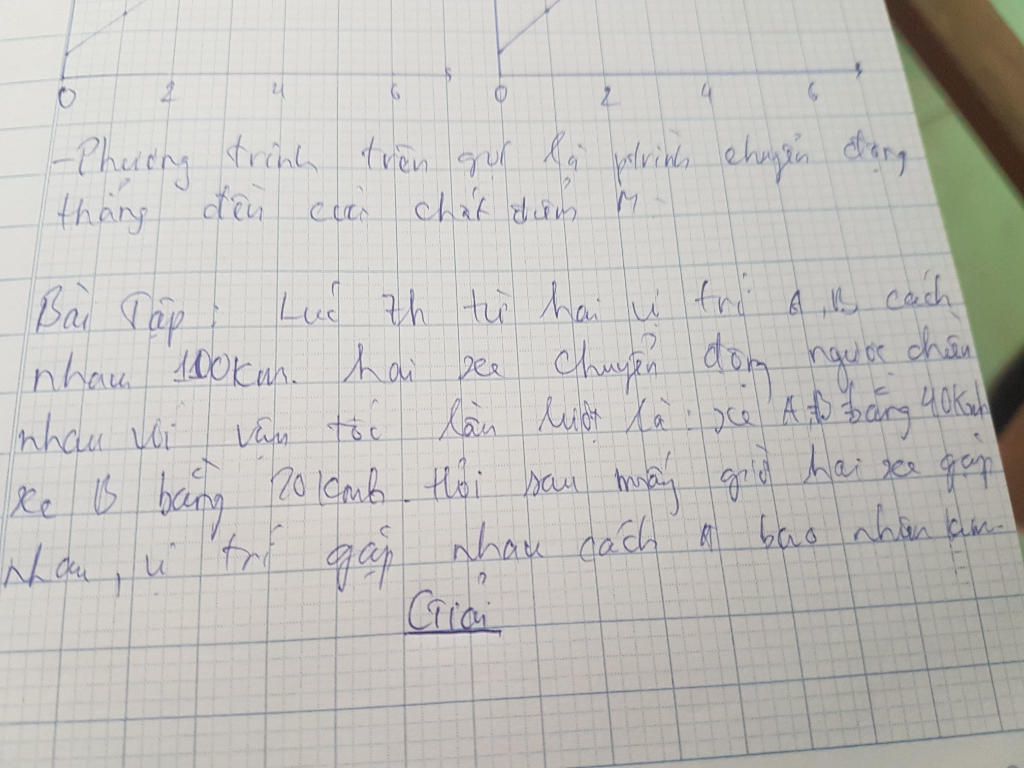 0 2 4 6 0 2 4 6
- Phương trình trên gọi là ptrình chuyển động
thẳng đều của chất điểm M.
Bài Tập: Lúc 7h từ hai vị trí A, B cách
nhau 100km. hai xe chuyển động ngược chiều
nhau với vận tốc lần lượt là: xe A bằng 40km/h
xe B bằng 20km/h. Hỏi sau mấy giờ hai xe gặp
nhau, vị trí gặp nhau cách A bao nhiêu km.
Giải